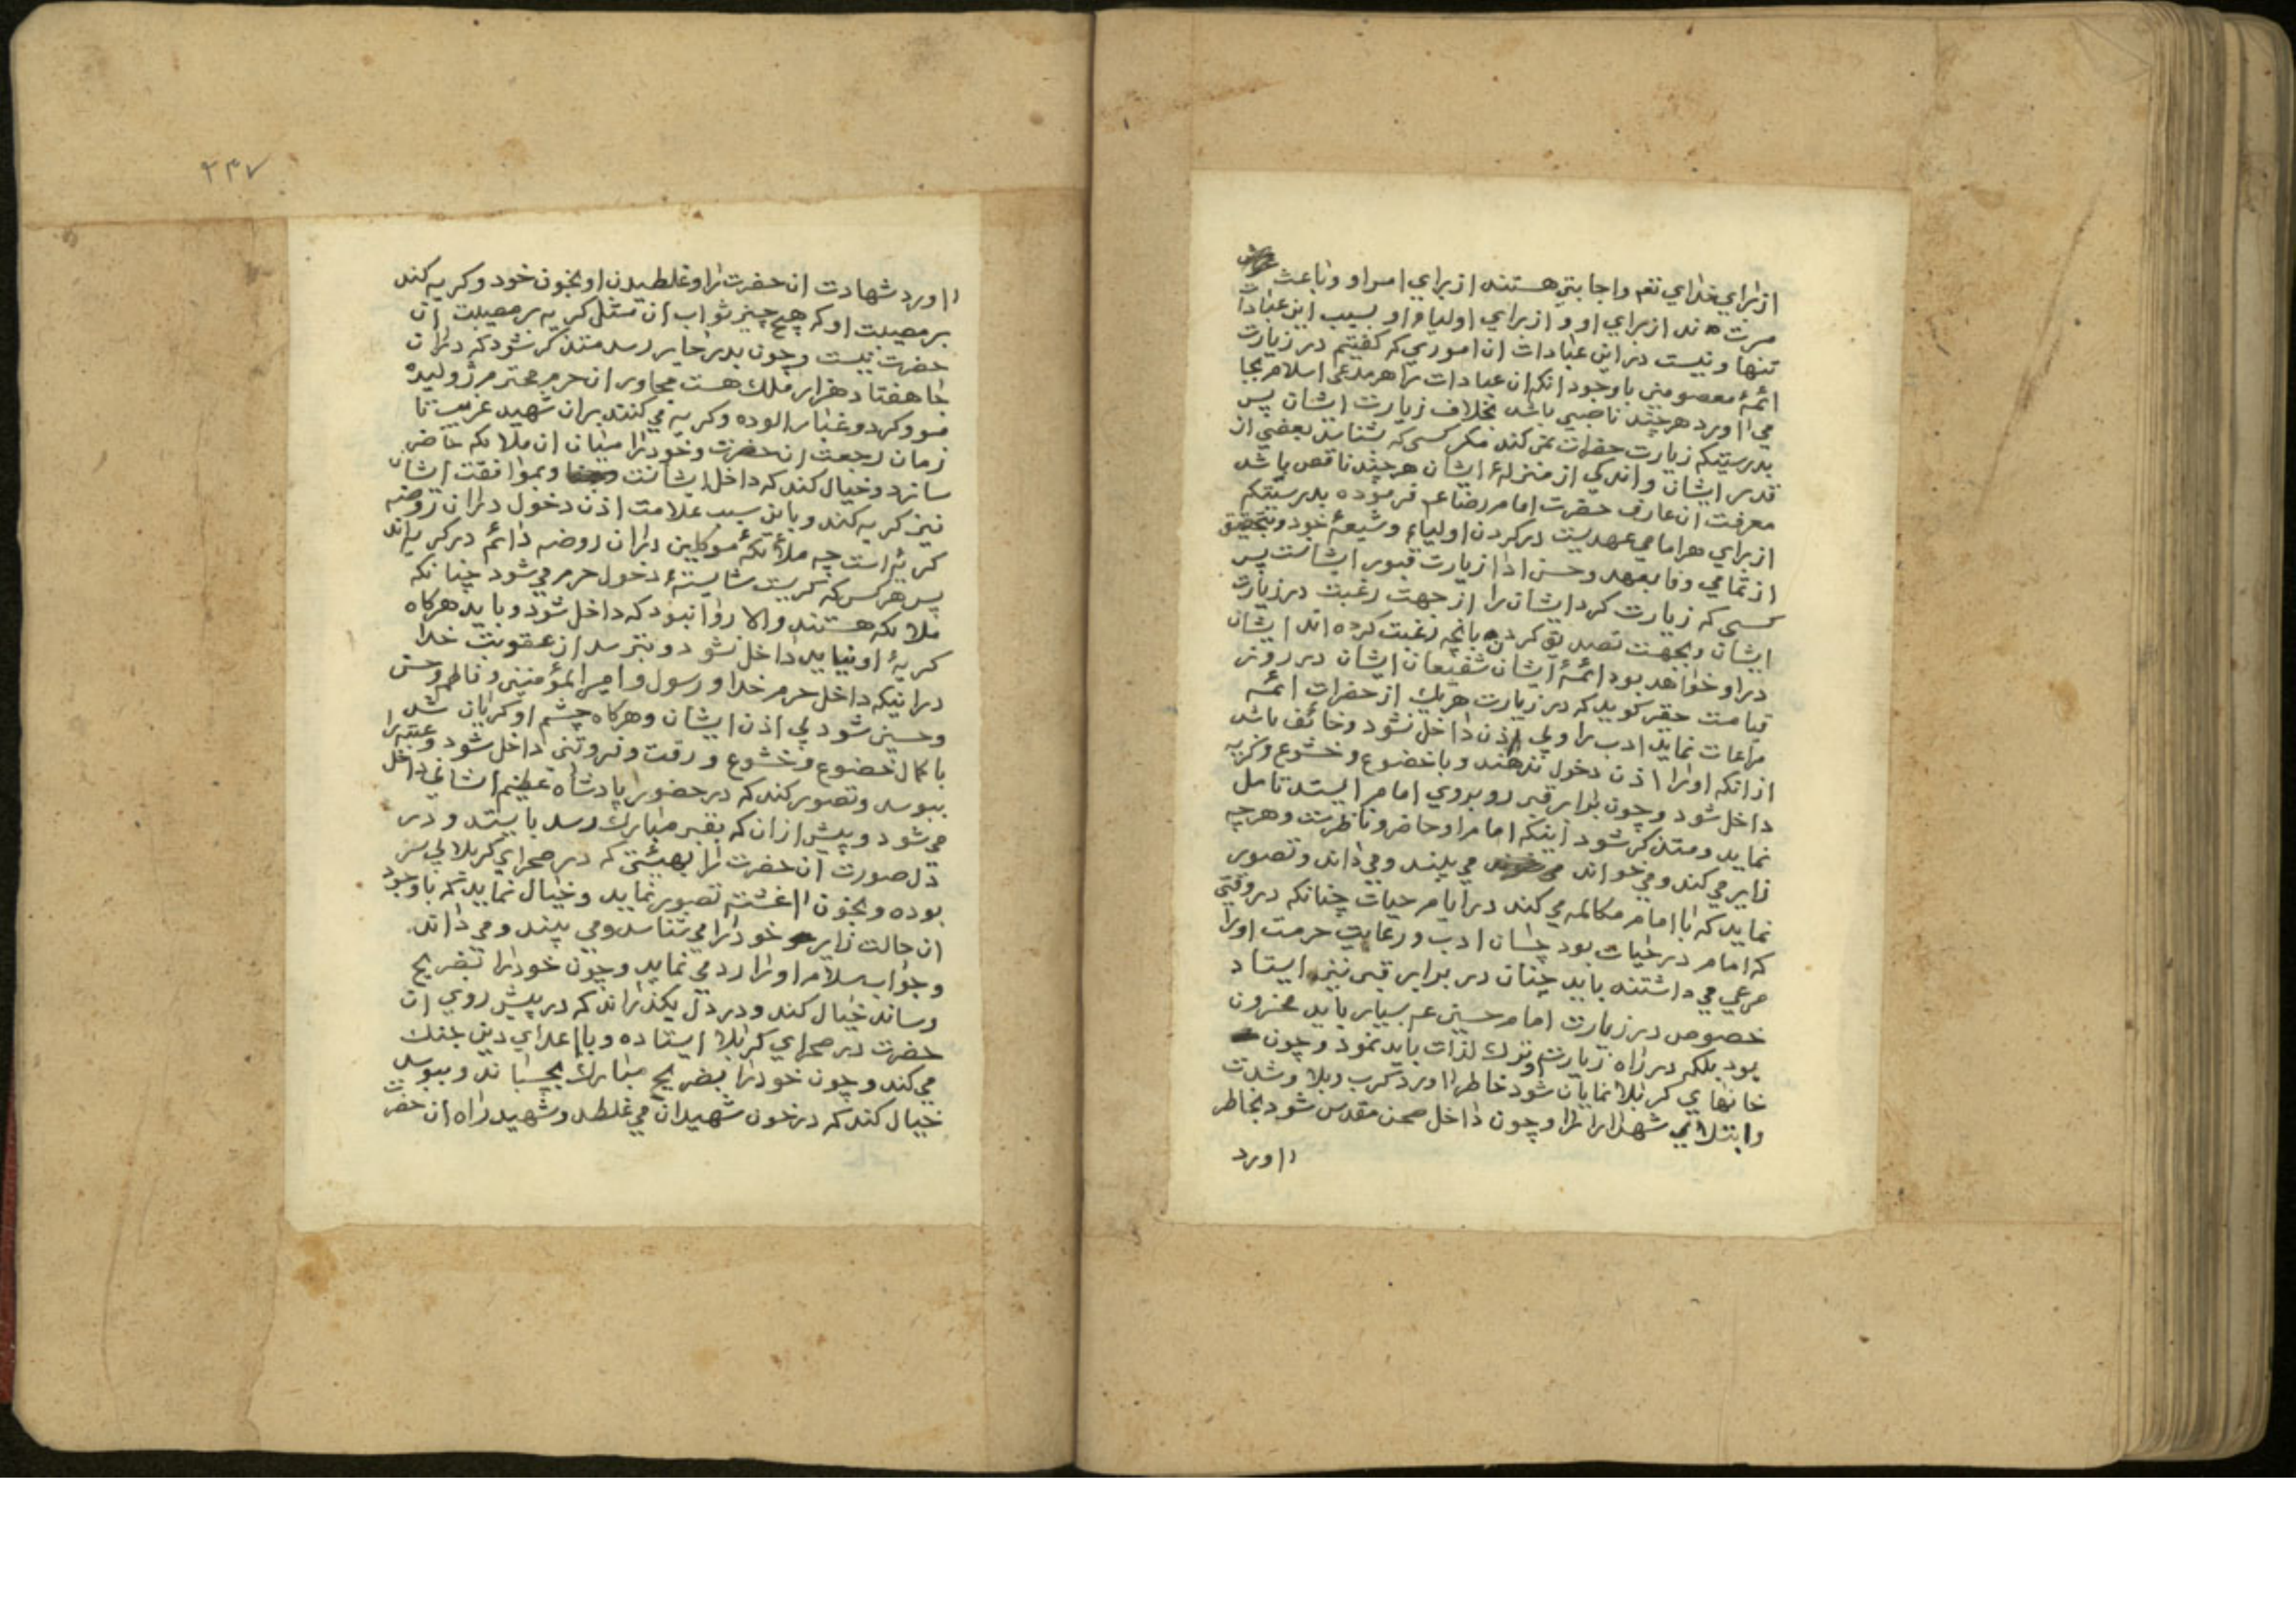 از برای خدای تعم واجابتی هستند از برای امر او و باعث
مسرت ند از برای او و از برای اولیاء او بسبب این عبادات
تنها و نیست در این عبادات ان اموری که کفتیم در زیارت
ائمهٔ معصومین با وجود انکه ان عبادات را هر مدعی اسلام بجا
می اورد هر چند ناصبی باشد بخلاف زیارت ایشان پس
بدرستیکه زیارت حضرات نمی کند مکر کسی که شناسد بعضی از
قدر ایشان و اندکی از منزلهٔ ایشان هر چند ناقص باشد
معرفت ان عارف حضرت امام رضا عم فرموده بدرستیکه
از برای هر امامی عهدیست در کردن اولیاء و شیعهٔ خود و بتحقیق
از تمامی وفا بعهد و حسن ادا زیارت قبور ایشانست پس
کسی که زیارت کرد ایشان را از جهت رغبت در زیارت
ایشان و بجهت تصدیق کردن بانچه رغبت کرده اند ایشان
در او خواهد بود ائمهٔ ایشان شفیعان ایشان در روز
قیامت حقیر کوید که در زیارت هر یك از حضرات ائمه
مراعات نماید ادب را و بی اذن داخل نشود و خائف باشد
از انکه او را اذن دخول ندهند و با خضوع و خشوع و کریه
داخل شود و چون برابر قبر رو بروی امام ایستد تامل
نماید و متذکر شود اینکه امام او حاضر و ناظرست و هر چه
زایر می کند و می خواند می بیند و می داند و تصویر
نماید که با امام مکالمه می کند در ایام حیات چنانکه در وقتی
که امام در حیات بود چسان ادب و رعایت حرمت او را
مرعی می داشتند باید چنان در برابر قبر نیز ایستاد
خصوص در زیارت امام حسین عم بسیار باید محزون
بود بلکه در راه زیارت و ترك لذات باید نمود و چون
خانهای کربلا نمایان شود خاطر اورد کرب و بلا و شدت
و ابتلای شهدا را و چون داخل صحن مقدس شود بخاطر
اورد
۲۳۷
اورد شهادت ان حضرت را و غلطیدن او بخون خود و کریه کند
بر مصیبت او که هیچ چیز ثواب ان مثل کریه بر مصیبت ان
حضرت نیست و چون بدر حایر رسد متذکر شود که در ان
جا هفتاد هزار ملك هست مجاور ان حرم محترم ژولیده
مو و کرد و غبار الوده و کریه می کنند بر ان شهید غریب تا
زمان رجعت ان حضرت و خود را میان ان ملائکه حاضر
سازد و خیال کند که داخل ایشانست و بموافقت ایشان
نیز کریه کند و باین سبب علامت اذن دخول در ان روضه
کریه است چه ملائکهٔ موکلین در ان روضه دائم در کریه اند
پس هر کس که کریست شایستهٔ دخول حرم می شود چنانکه
ملائکه هستند و الا روا نبود که داخل شود و باید هرکاه
کریهٔ او نیاید داخل نشود و بترسد از عقوبت خدا
در اینکه داخل حرم خدا و رسول و امیر المؤمنین و فاطمه و حسن
و حسین شود بی اذن ایشان و هرکاه چشم او کریان شد
با کمال خضوع و خشوع و رقت و فروتنی داخل شود و عتبه را
ببوسد و تصور کند که در حضور پادشاه عظیم الشانی داخل
می شود و پیش از ان که بقبر مبارك رسد بایستد و در
دل صورت ان حضرت را بهیئتی که در صحرای کربلا بی سر
بوده و بخون اغشته تصویر نماید و خیال نماید که با وجود
ان حالت زایر خود را می شناسد و می بیند و می داند
و جواب سلام او را رد می نماید و چون خود را بضریح
رساند خیال کند و در دل بکذراند که در پیش روی ان
حضرت در صحرای کربلا ایستاده و با اعدای دین جنك
می کند و چون خود را بضریح مبارك بچسباند و ببوسد
خیال کند که در خون شهیدان می غلطد و شهید راه ان حضرت